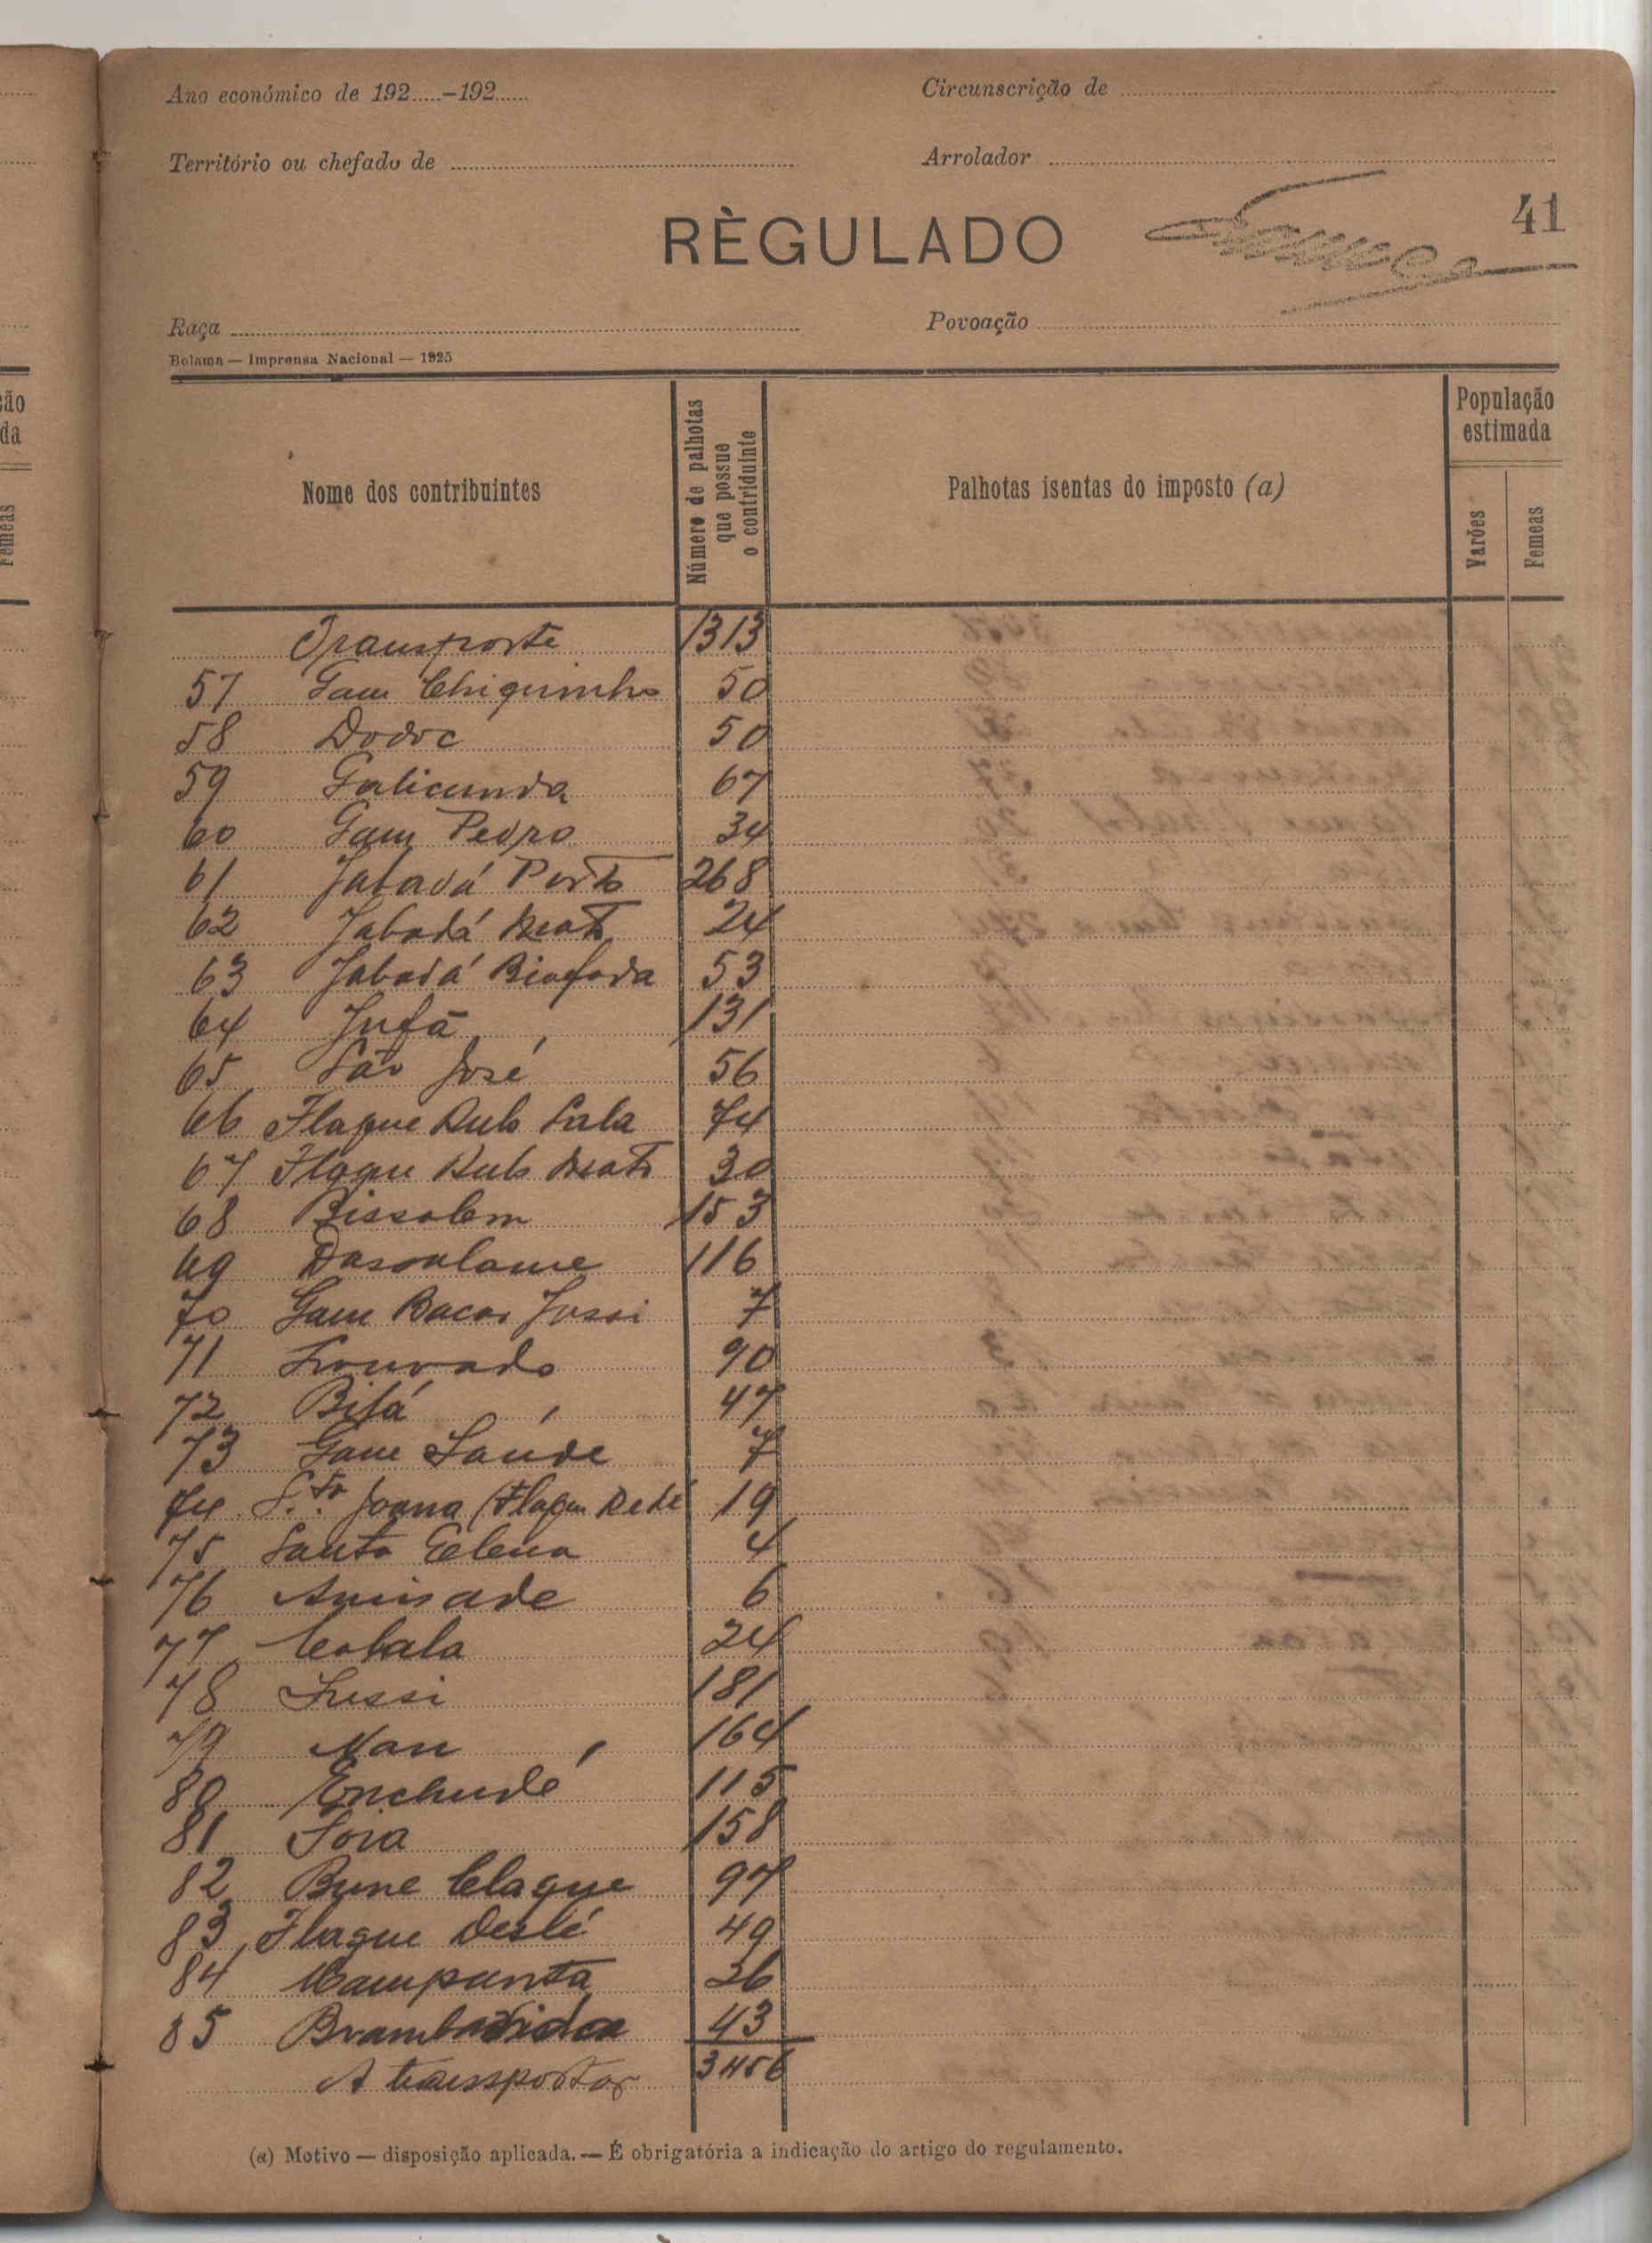 Ano económico de 192.....–192.....
Circunscrição de
Território ou chefado de
Arrolador
RÈGULADO
41
Raça
Povoação
Bolama — Imprensa Nacional — 1925
Nome dos contribuintes
Número de palhotas que possue o contriduinto
Palhotas isentas do imposto (a)
População estimada
Varões
Femeas
Transporte 1313
57 Gam Chiquinho 50
58 Dodoc 50
59 Galicunda 67
60 Gam Pedro 34
61 Jabadá Porto 268
62 Jabadá Mato 24
63 Jabadá Biafada 53
64 Jufá 131
65 São José 56
66 Flaque Dulo Sala 74
67 Flaque Dulo Mato 30
68 Bissolem 153
69 Dasoalame 116
70 Gam Bacar Jussi 7
71 Louvado 90
72 Bilá 47
73 Gam Saúde 7
74 S.ta Joana (Flaque Dedé 19
75 Santa Elena 4
76 Amisade 6
77 Cobala 24
78 Fussi 181
79 Nan 164
80 Enchudé 115
81 Foia 158
82 Bune Claque 97
83 Flaque Deslé 49
84 Campanta 26
85 Brambadidca 43
A transportar 3456
(a) Motivo — disposição aplicada. — É obrigatória a indicação do artigo do regulamento.
ção
da
Femeas